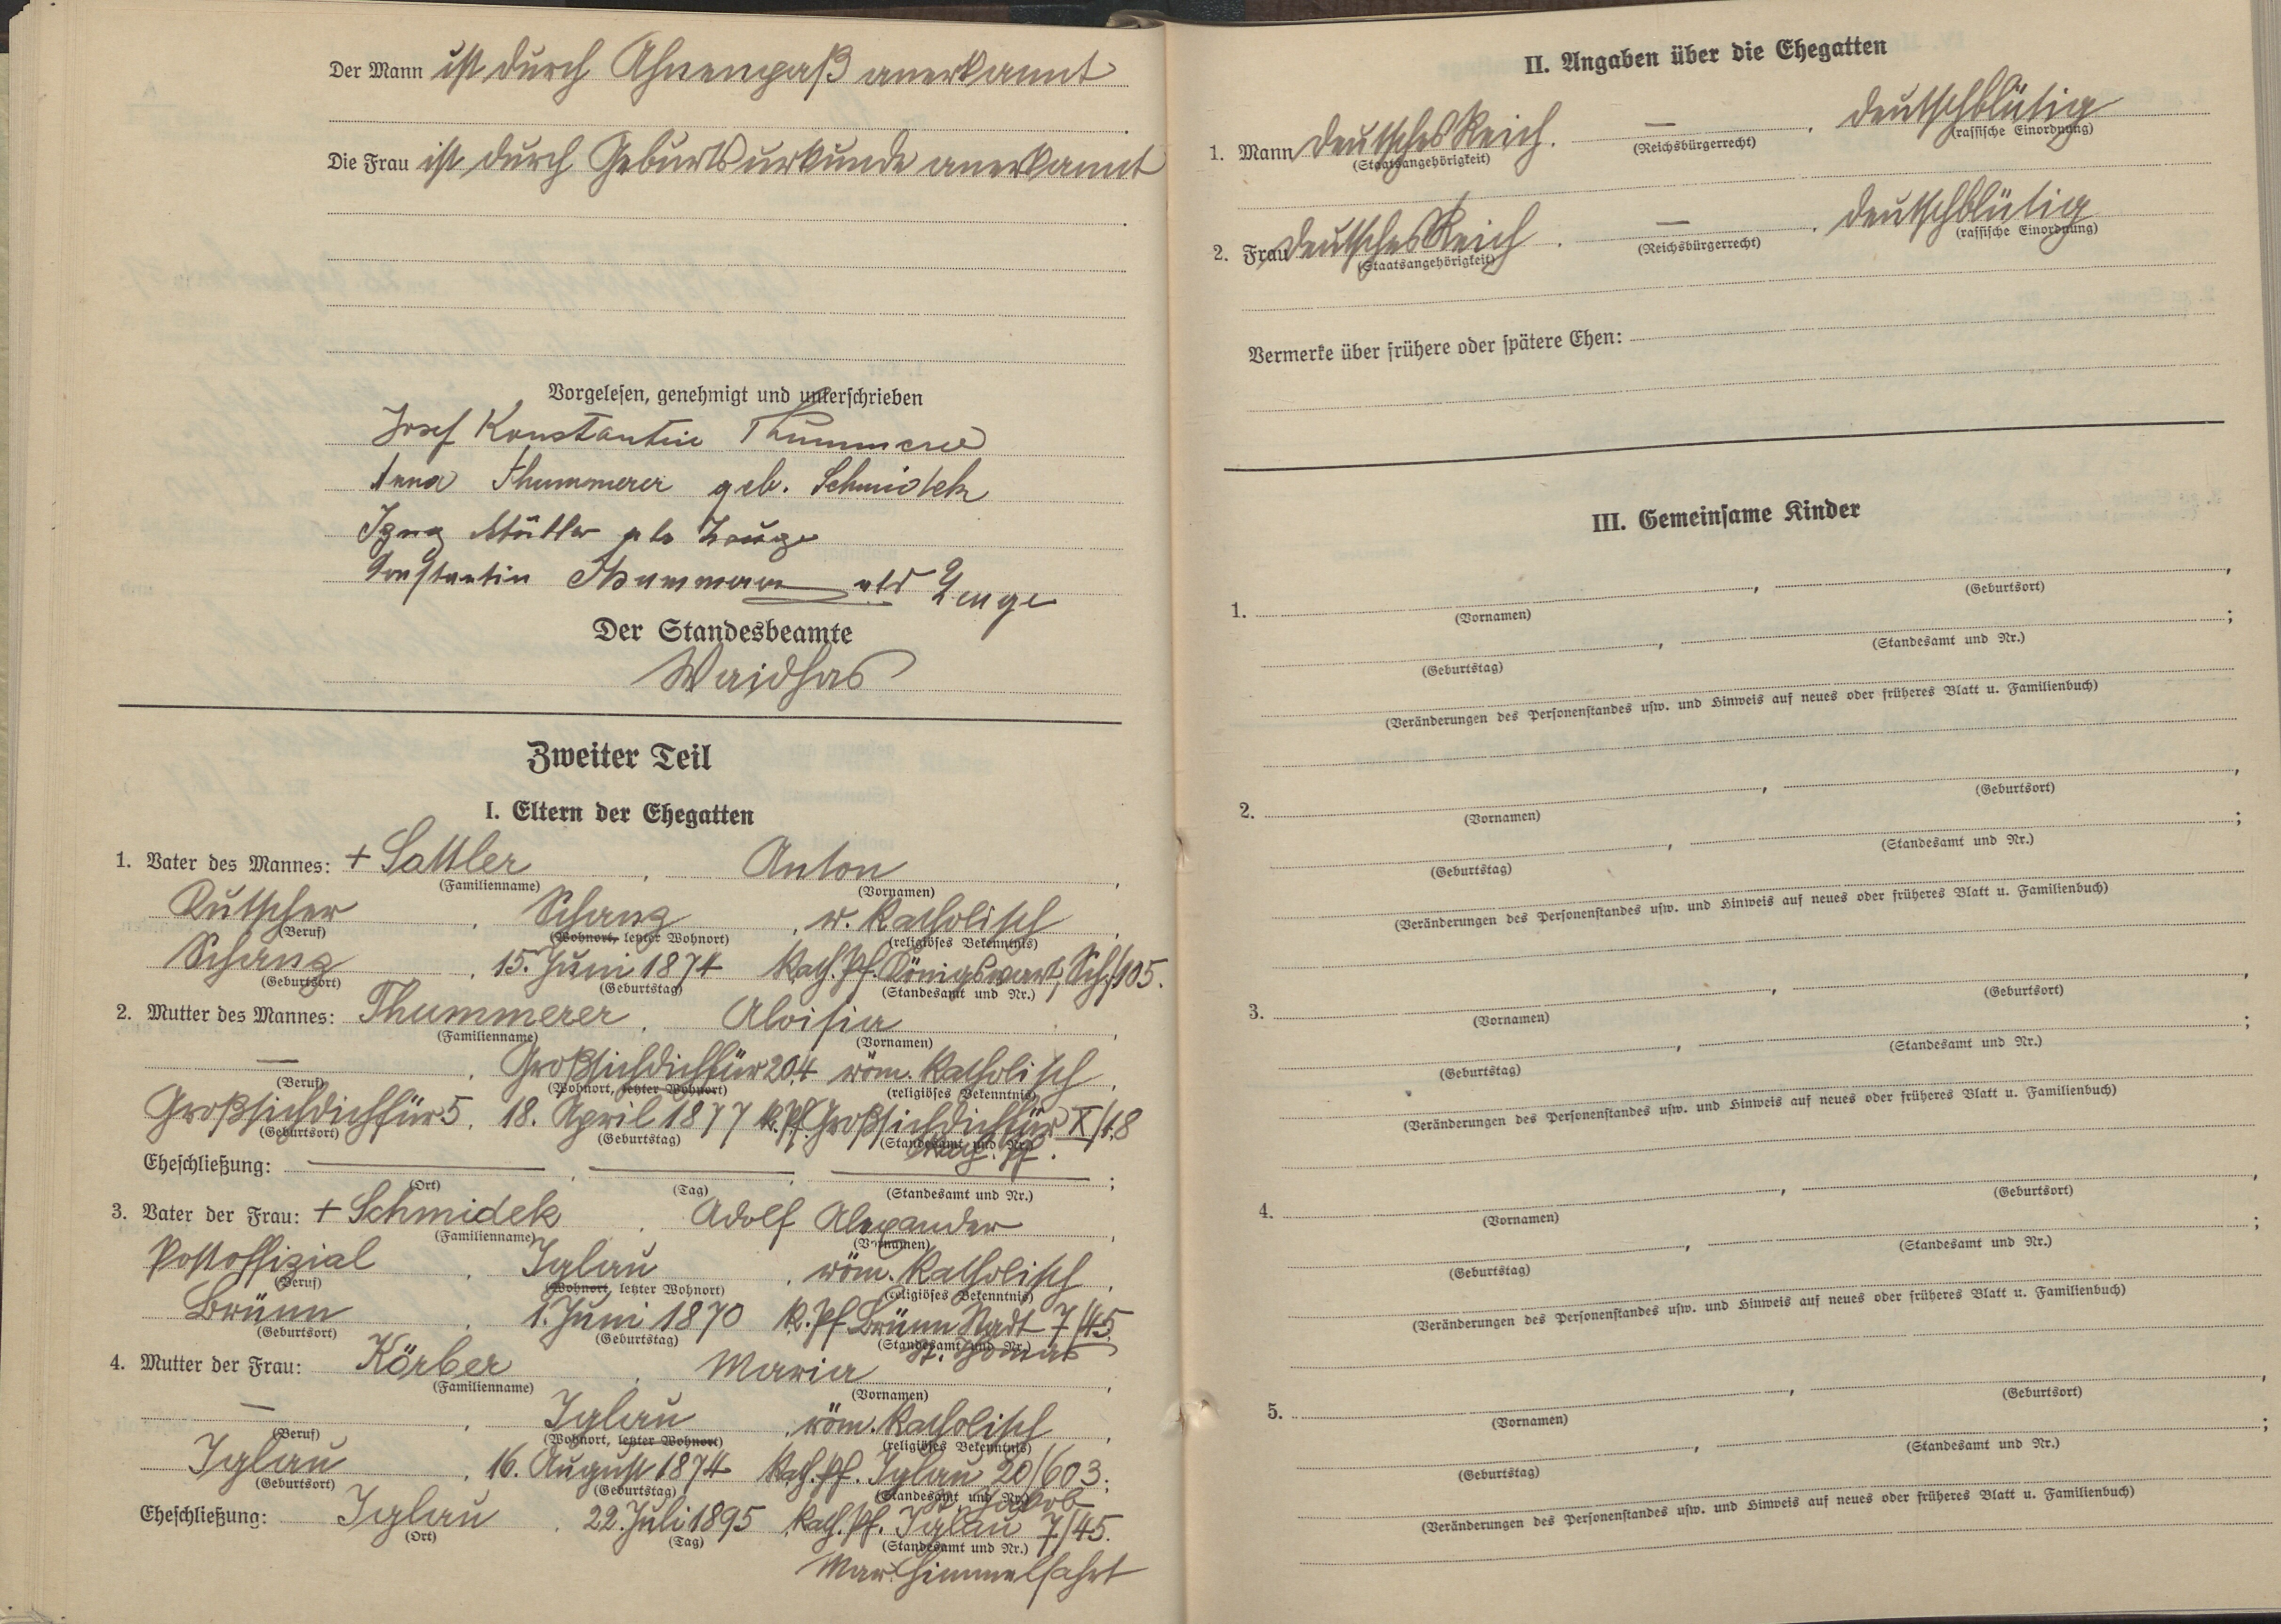 Der Mann ist durch Ahnenpaß anerkannt
Die Frau ist durch Geburtsurkunde anerkannt
Vorgelesen, genehmigt und unterschrieben
Josef Konstantin Thummerer
Anna Thummerer geb. Schmidek
Ignaz als Zeuge
Konstantin Thummerer als Zeuge
Der Standesbeamte
Waidhas
Zweiter Teil
I. Eltern der Ehegatten
1. Vater des Mannes: + Sattler, Anton,
(Familienname) (Vornamen)
Kutscher, Schanz, r. katholisch,
(Beruf) (Wohnort, letzter Wohnort) (religiöses Bekenntnis)
Schanz, 15. Juni 1874 Kath. Pf. Königswart, Sch/105.
(Geburtsort) (Geburtstag) (Standesamt und Nr.)
2. Mutter des Mannes: Thummerer, Aloisia,
(Familienname) (Vornamen)
—, Großsichdichfür 204 röm. katholisch,
(Beruf) (Wohnort, letzter Wohnort) (religiöses Bekenntnis)
Großsichdichfür 5, 18. April 1877 k. Pf. Großsichdichfür X/18
(Geburtsort) (Geburtstag) (Standesamt und Nr.)
Eheschließung: —, —, —;
(Ort) (Tag) (Standesamt und Nr.)
3. Vater der Frau: + Schmidek, Adolf Alexander,
(Familienname) (Vornamen)
Postoffizial, Iglau, röm. katholisch,
(Beruf) (Wohnort, letzter Wohnort) (religiöses Bekenntnis)
Brünn, 1. Juni 1870 k. Pf Brünn Stadt 7/45.
(Geburtsort) (Geburtstag) (Standesamt und Nr.)
St. Thomas
4. Mutter der Frau: Körber, Maria,
(Familienname) (Vornamen)
—, Iglau, röm. katholisch,
(Beruf) (Wohnort, letzter Wohnort) (religiöses Bekenntnis)
Iglau, 16. August 1874 Kath. Pf. Iglau 20/603.
(Geburtsort) (Geburtstag) (Standesamt und Nr.)
St. Jakob
Eheschließung: Iglau, 22. Juli 1895 Kath. Pf. Iglau 7/45.
(Ort) (Tag) (Standesamt und Nr.)
Mar. Himmelfahrt
II. Angaben über die Ehegatten
1. Mann Deutsches Reich. —, deutschblütig
(Staatsangehörigkeit) (Reichsbürgerrecht) (rassische Einordnung)
2. Frau Deutsches Reich. —, deutschblütig
(Staatsangehörigkeit) (Reichsbürgerrecht) (rassische Einordnung)
Vermerke über frühere oder spätere Ehen:
III. Gemeinsame Kinder
1. , ,
(Vornamen) (Geburtsort)
, ;
(Geburtstag) (Standesamt und Nr.)
(Veränderungen des Personenstandes usw. und Hinweis auf neues oder früheres Blatt u. Familienbuch)
2. , ,
(Vornamen) (Geburtsort)
, ;
(Geburtstag) (Standesamt und Nr.)
(Veränderungen des Personenstandes usw. und Hinweis auf neues oder früheres Blatt u. Familienbuch)
3. , ,
(Vornamen) (Geburtsort)
, ;
(Geburtstag) (Standesamt und Nr.)
(Veränderungen des Personenstandes usw. und Hinweis auf neues oder früheres Blatt u. Familienbuch)
4. , ,
(Vornamen) (Geburtsort)
, ;
(Geburtstag) (Standesamt und Nr.)
(Veränderungen des Personenstandes usw. und Hinweis auf neues oder früheres Blatt u. Familienbuch)
5. , ,
(Vornamen) (Geburtsort)
, ;
(Geburtstag) (Standesamt und Nr.)
(Veränderungen des Personenstandes usw. und Hinweis auf neues oder früheres Blatt u. Familienbuch)